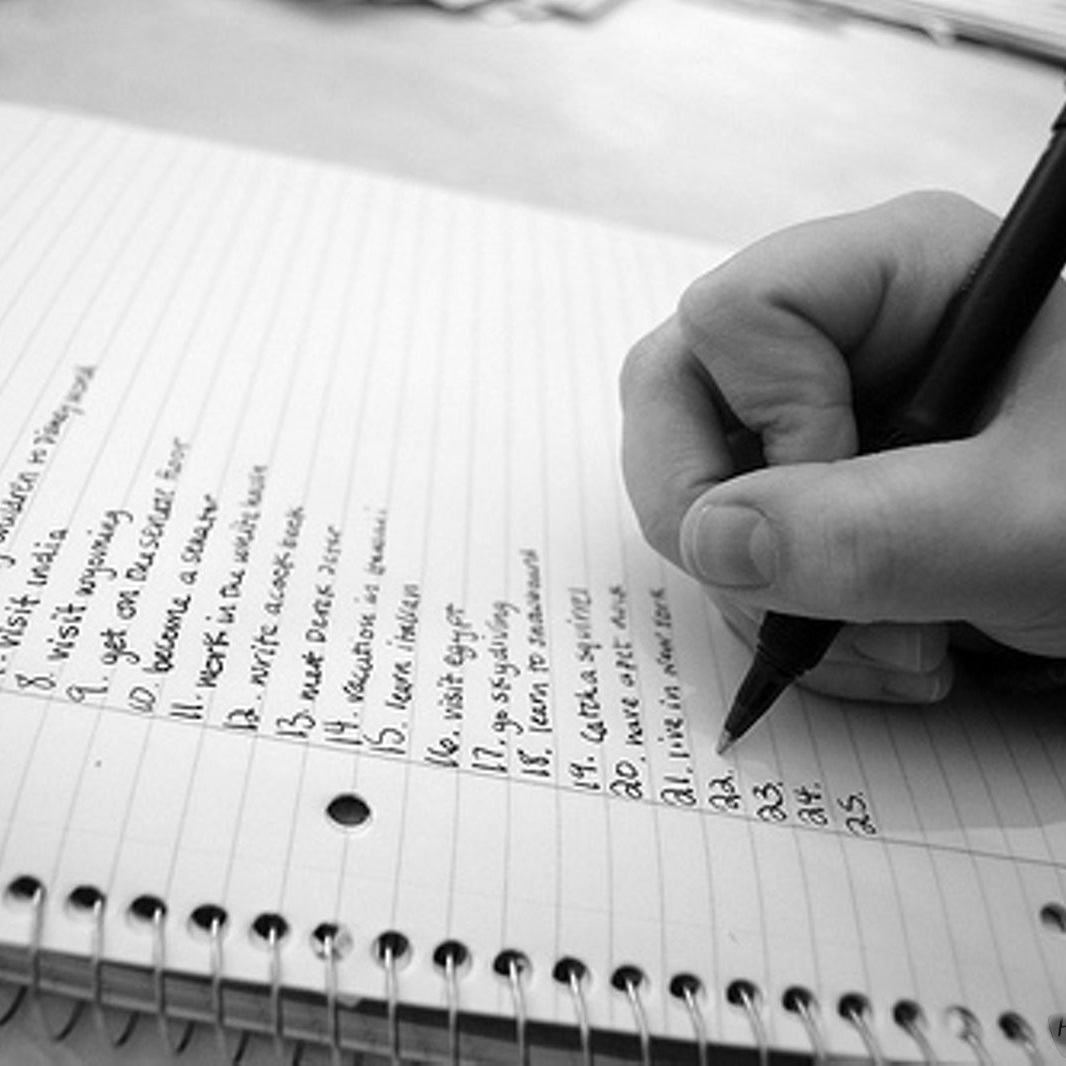 children to Disney world
visit India
8. visit wyoming
9. get on the senate floor
10. become a senator
11. work in the white house
12. write a cook book
13. meet Derek Jeter
14. vacation in
15. learn italian
16. visit egypt
17. go skydiving
18. learn to snowboard
19. catch a squirrel
20. have a pet
21. live in new york
22.
23.
24.
25.
H